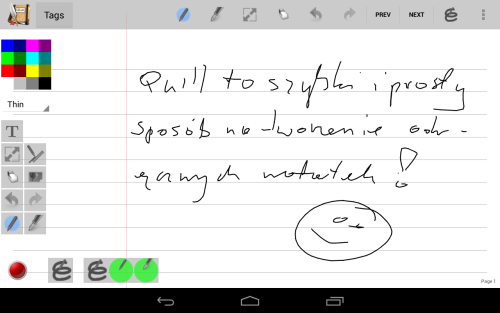 Tags
PREV NEXT
Thin
T
Quill to szybki i prosty
sposób na tworzenie odr-
ęcznych notatek!
Page 1